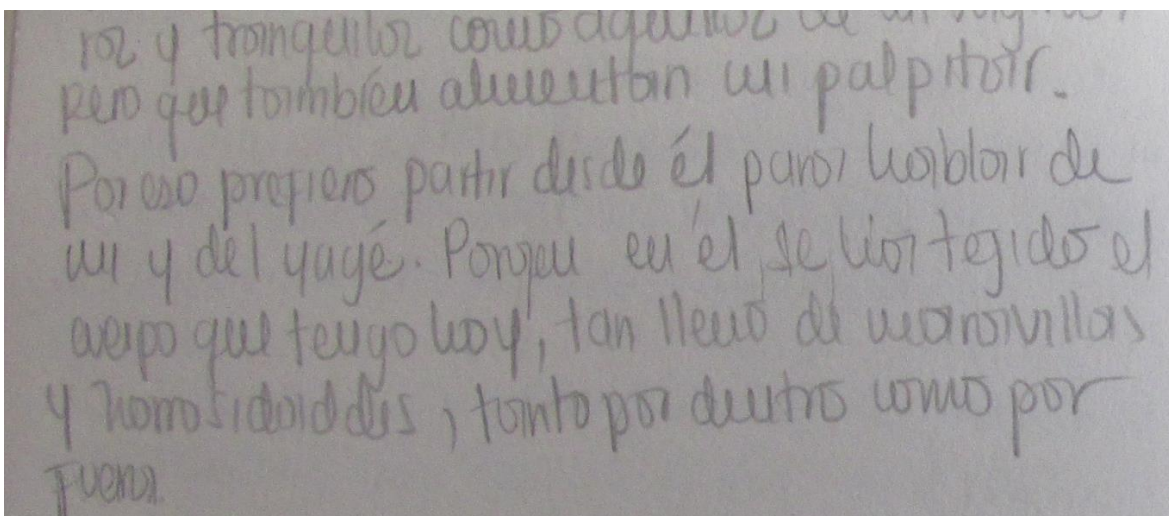 ros y tranquilos como aquellos de mi
pero que también alimentan mi palpitar.
Por eso prefiero partir desde él para hablar de
mi y del yagé. Porque en él se ha tejido el
cuerpo que tengo hoy, tan lleno de maravillas
y horrosidaddes, tanto por dentro como por
fuera.